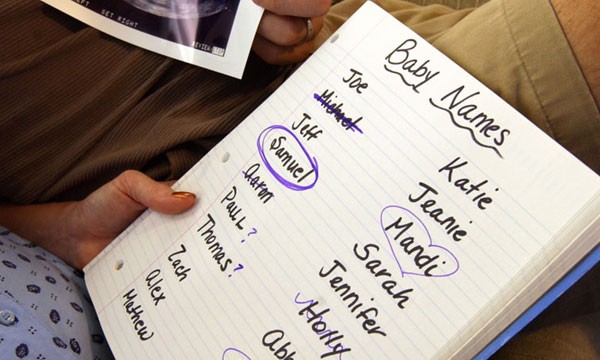 GET RIGHT
REVIEW
Baby Names
Joe
Michael
Jeff
Samuel
Aaron
Paul?
Thomas?
Zach
Alex
Mathew
Katie
Jeanie
Mandi
Sarah
Jennifer
Holly